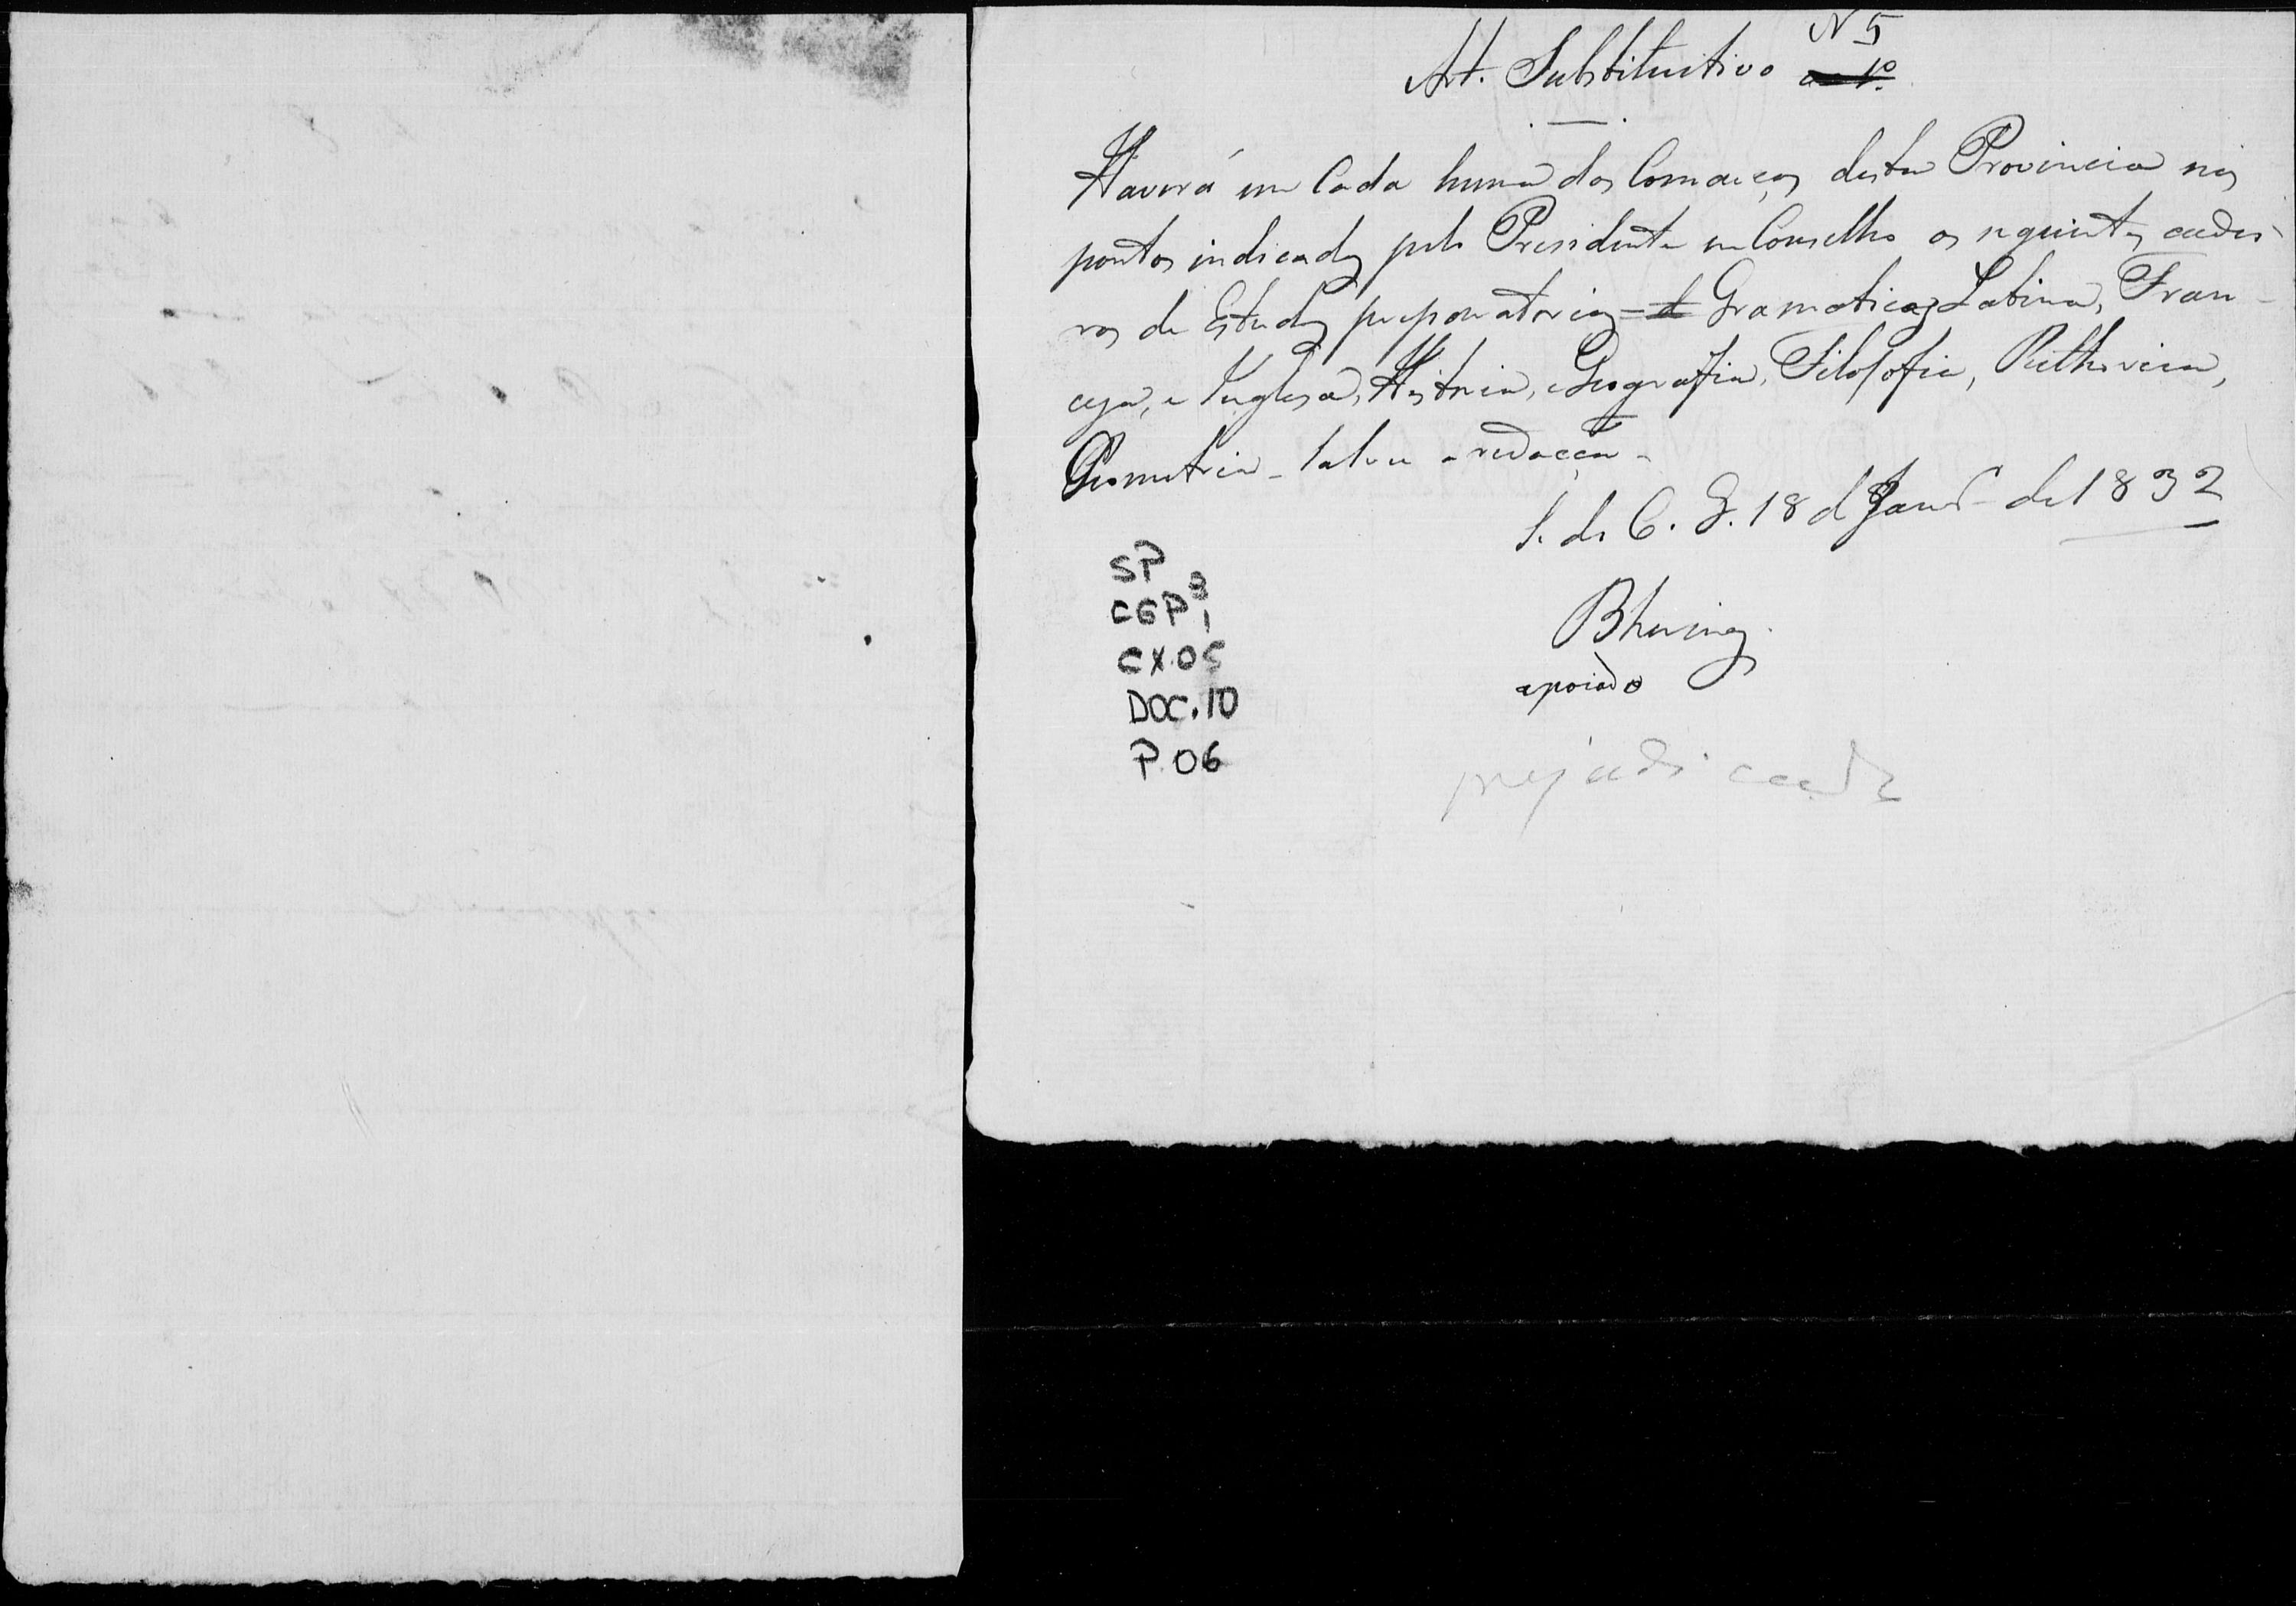 N 5
Art. Substitutivo ao 1º
Haverá em Cada huma das Comarcas desta Provincia nos
pontos indicados pelo Presidente em Conselho as seguintes cadei-
ras de Estudos preparatorios = Gramaticas Latina, Fran-
ceza, e Inglesa, Historia, e Geografia, Filosofia, Rethorica,
Geometria - Salva a redacção -
S. do C. G. 18 de Janrº de 1832
apoiado
prejudicado
SP
CGP 3
1
CX.05
DOC.10
P.06